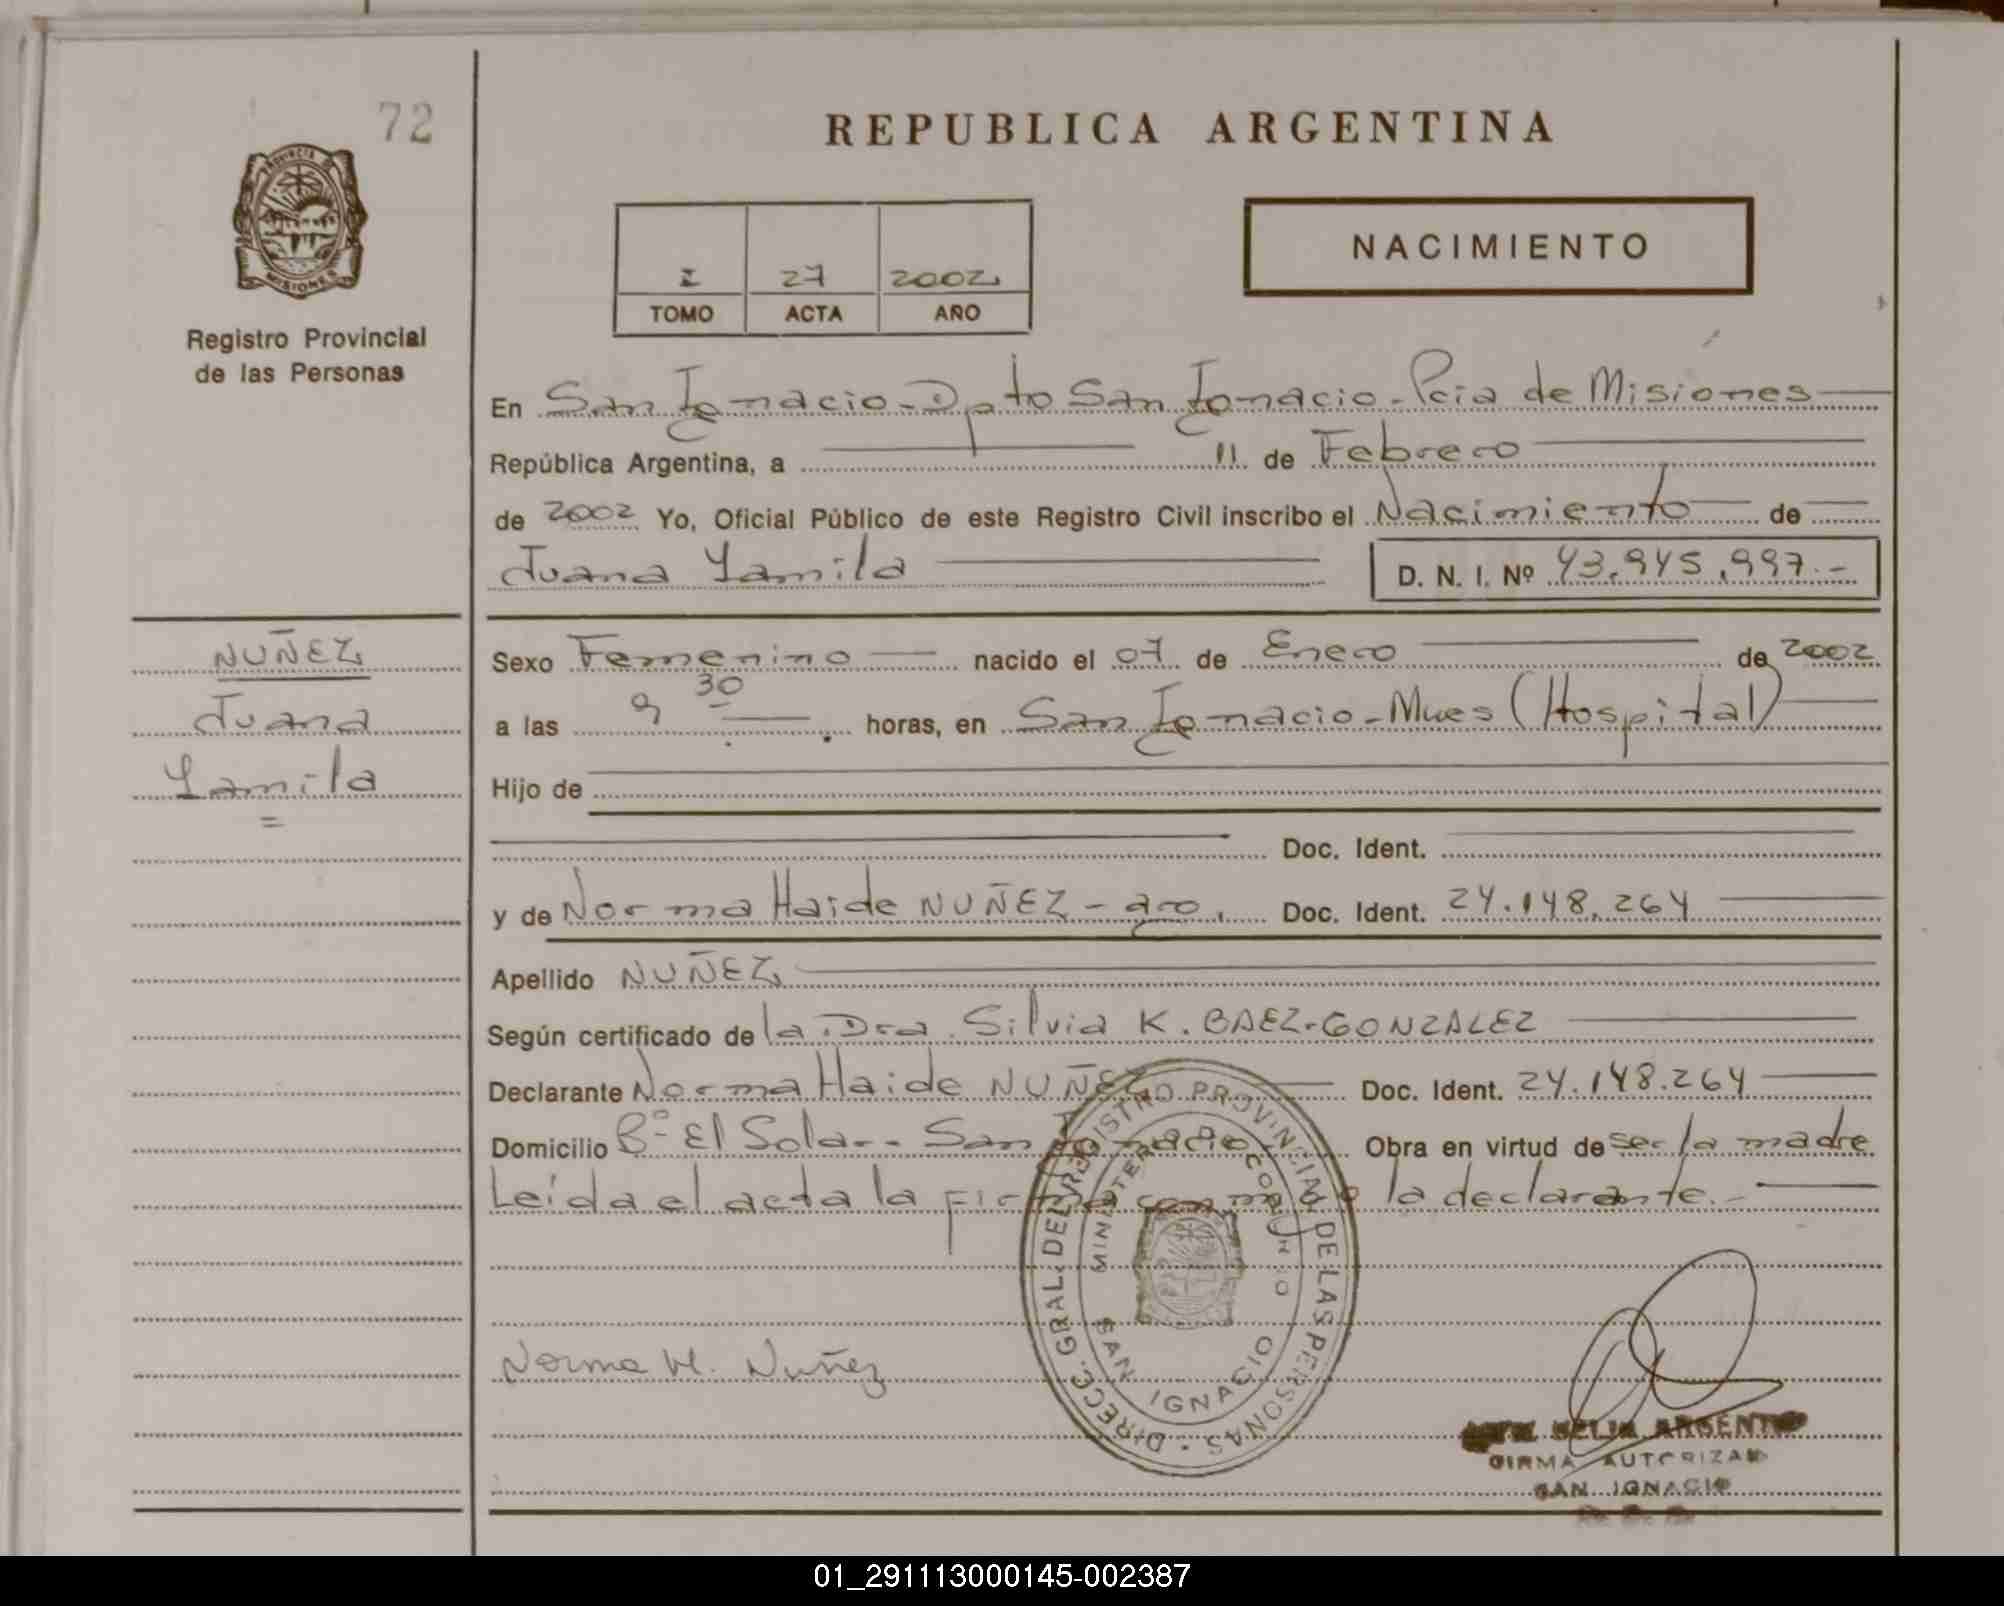 72
PROVINCIA DE
MISIONES
Registro Provincial
de las Personas
NUÑEZ
Juana
Yamila
=
REPUBLICA ARGENTINA
I 27 2002
TOMO ACTA AÑO
NACIMIENTO
En San Ignacio - Dpto San Ignacio - Pcia de Misiones
República Argentina, a 11 de Febrero
de 2002 Yo, Oficial Público de este Registro Civil inscribo el Nacimiento de
Juana Yamila D. N. I. Nº 43.945.997.-
Sexo Femenino nacido el 07 de Enero de 2002
a las 9 30 horas, en San Ignacio - Mnes (Hospital)
Hijo de
Doc. Ident.
y de Norma Haide NUÑEZ - arg. Doc. Ident. 24.148.264
Apellido NUÑEZ
Según certificado de la Dra. Silvia K. BAEZ-GONZALEZ
Declarante Norma Haide NUÑEZ Doc. Ident. 24.148.264
Domicilio Bº El Solar - San Ignacio Obra en virtud de ser la madre
Leída el acta la firma conmigo la declarante.-
DIRECC. GRAL. DEL REGISTRO PROVINCIAL DE LAS PERSONAS
SAN IGNACIO
Norma H. Nuñez
FIRMA AUTORIZADA
SAN IGNACIO
01_291113000145-002387